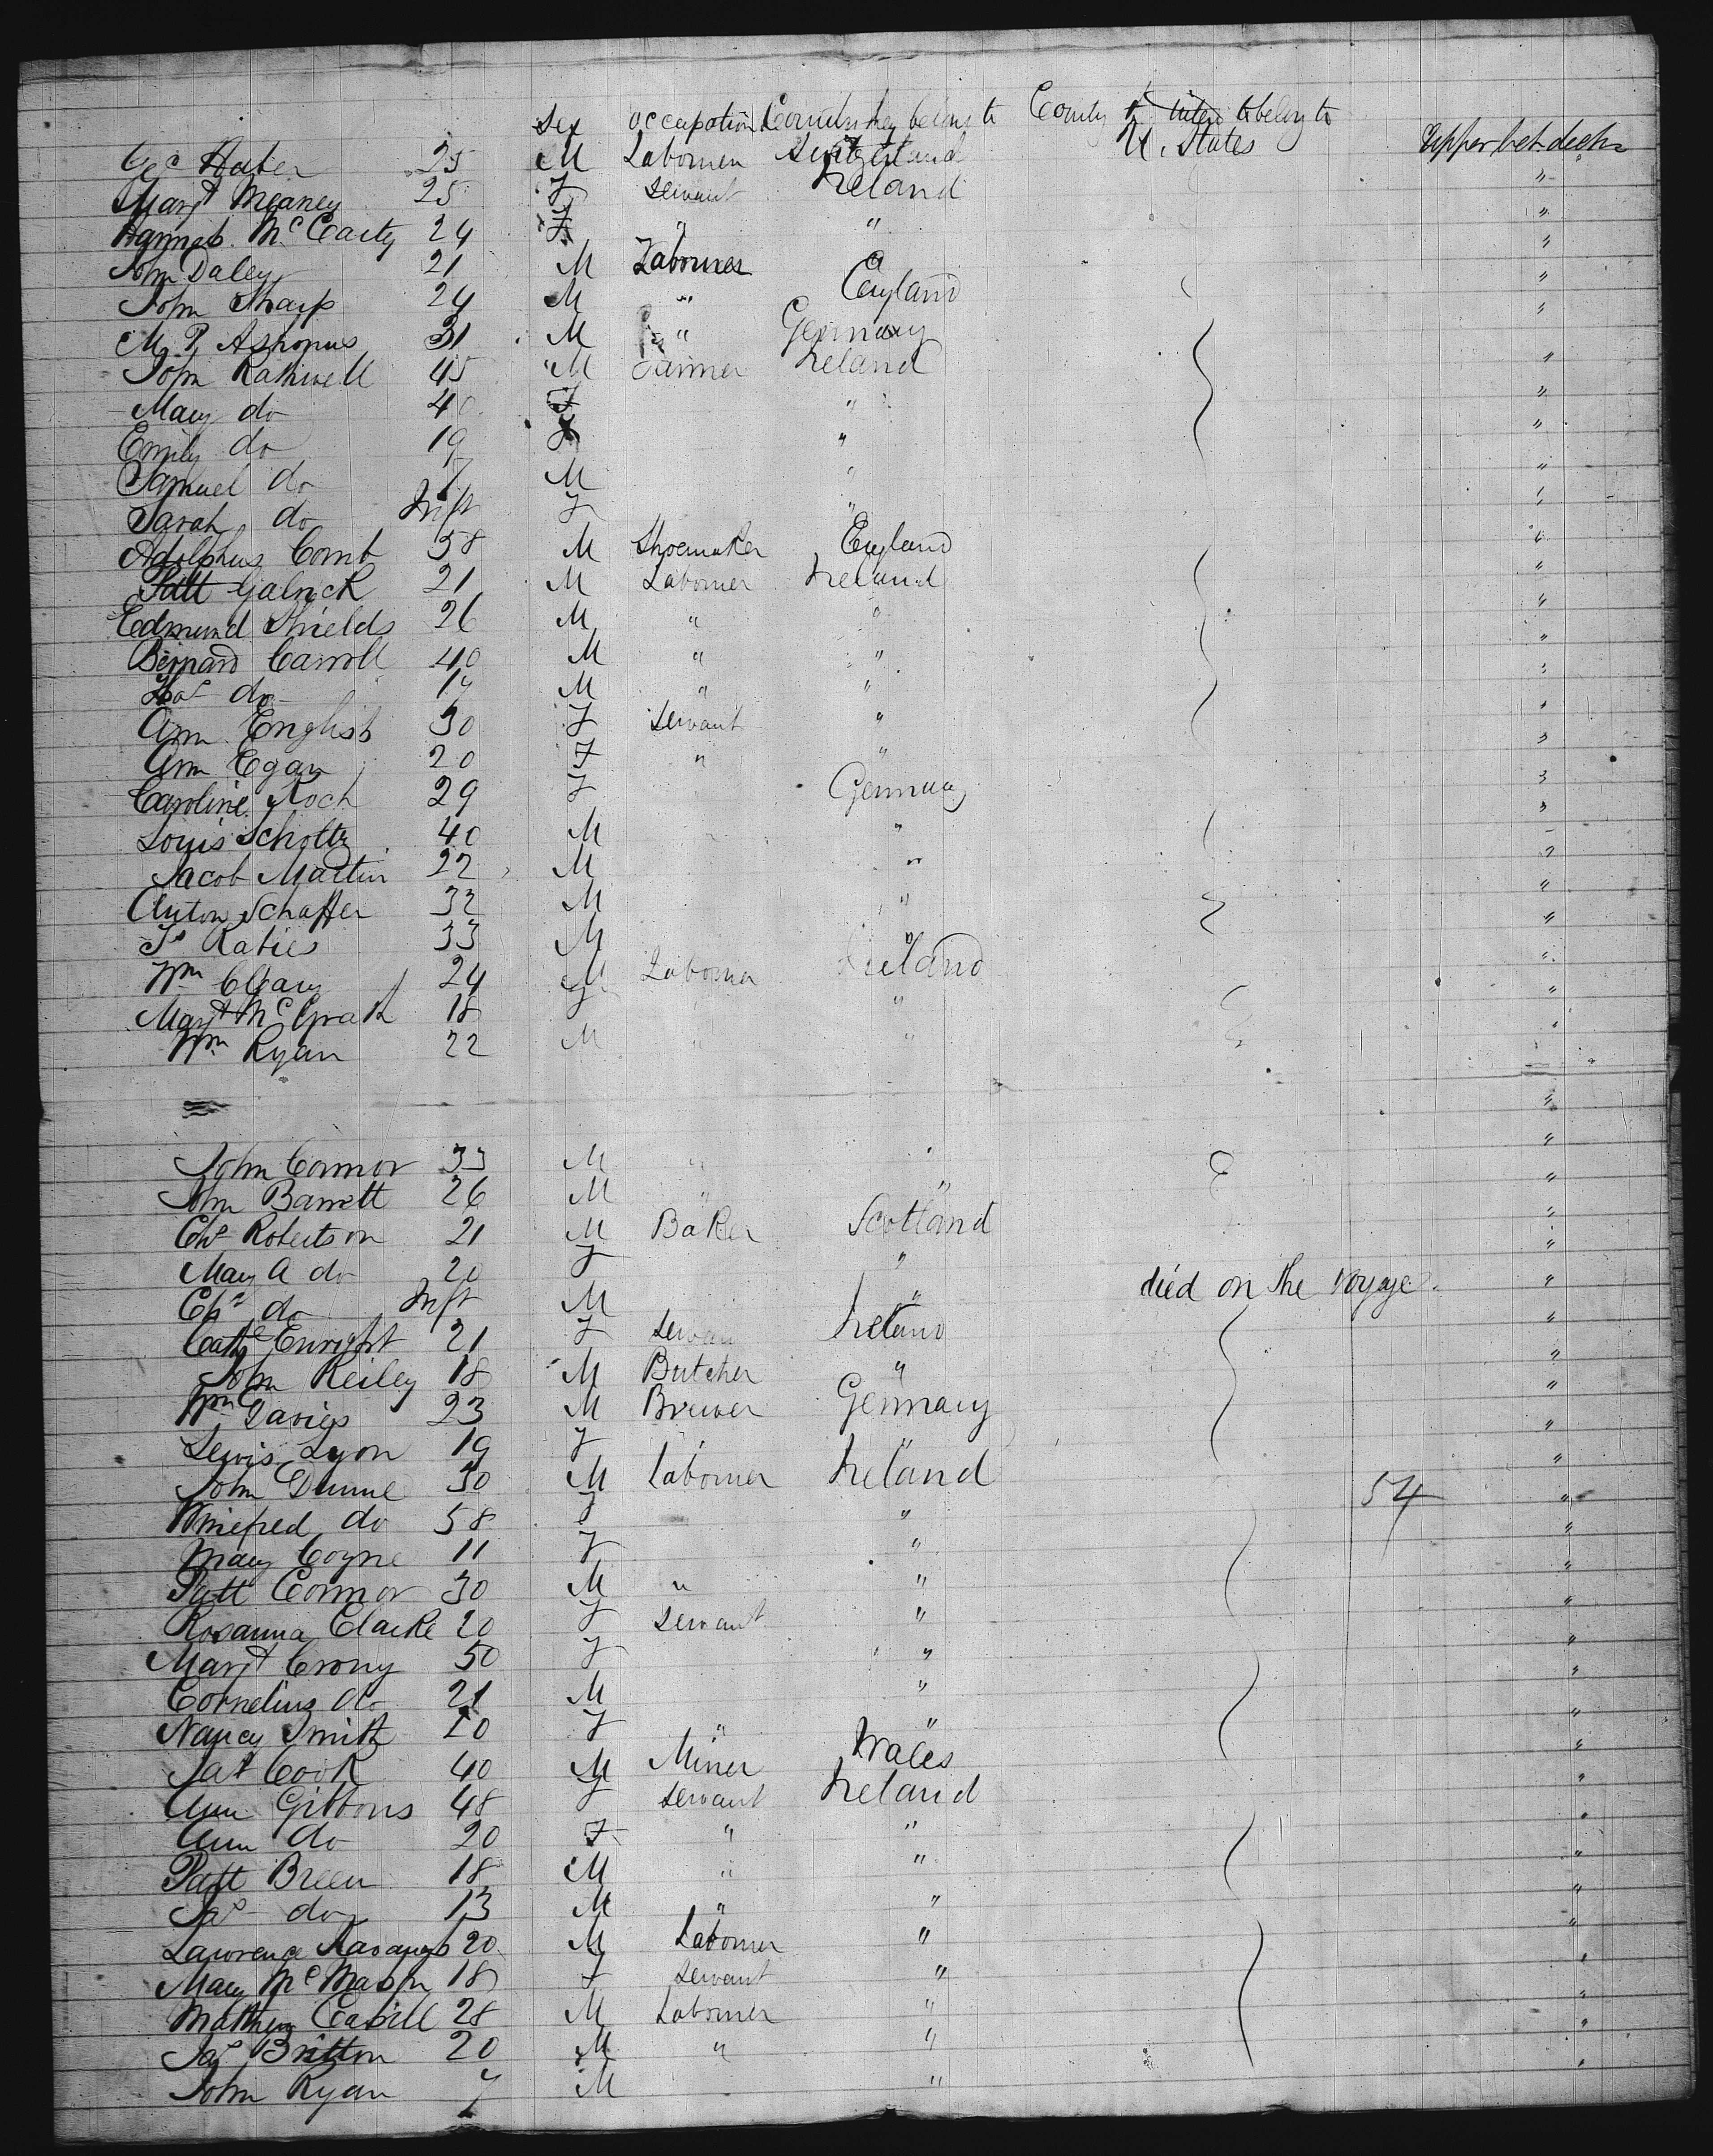 Sex Occupation Country they belong to Country they intend to belong to
Geo Huber 25 M Labourer Switzerland U. States Upper bet decks
Margt Meaney 25 F Servant Ireland "
Hannah McCarty 24 F " " "
John Daley 21 M Labourer " "
John Sharp 24 M " England "
M. P. 31 M " Germany "
John Rathwell 45 M Farmer Ireland "
Mary do 40 F " "
Emily do 19 F " "
Samuel do 7 M " "
Sarah do Inft F " "
Adolphus Comb 58 M Shoemaker England "
Patt Galrick 21 M Labourer Ireland "
Edmund Shields 26 M " " "
Bernard Carroll 40 M " " "
do 17 M " " "
Ann English 30 F Servant " "
Ann Egan 20 F " " "
Caroline Koch 29 F Germany "
Louis Scholtz 40 M " "
Jacob Martin 22 M " "
Anton Schaffer 32 M " "
Js Raties 33 M " "
Wm Cleary 24 M Labourer Ireland "
Margt McGrath 18 F " " "
Wm Ryan 22 M " " "
John Connor 33 M " " "
John Barrett 26 M " " "
Chs Robertson 21 M Baker Scotland "
Mary A do 20 F " "
Chs do Inft M " died on the voyage "
Cathe Enright 21 F Servant Ireland "
John Reiley 18 M Butcher " "
Wm Davies 23 M Brewer Germany "
Lewis Lyon 19 F " "
John Dunne 30 M Labourer Ireland "
Winefred do 58 F " 54 "
Mary Coyne 11 F " "
Patt Connor 30 M " " "
Rosanna Clarke 20 F Servant " "
Margt Crony 50 F " "
Cornelius do 21 M " "
Nancy Smith 20 F " " "
Jas Cook 40 M Miner Wales "
Ann Gibbons 48 F Servant Ireland "
Ann do 20 F " " "
Patt Breen 18 M " " "
Jas do 13 M " " "
Lawrence Kavanagh 20 M Labourer " "
Mary McMahon 18 F Servant " "
Mathew Cahill 28 M Labourer " "
Jas Britton 20 M " " "
John Ryan 7 M "